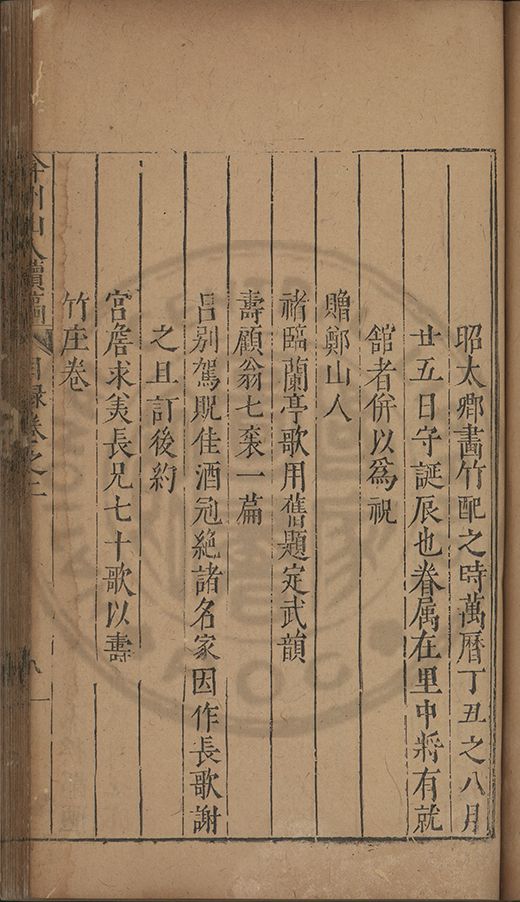 昭太卿畵竹配之時萬曆丁丑之八月
廿五日守誕辰也眷属在里中將有就
舘者併以爲祝
贈鄭山人
禇臨蘭亭歌用舊題定武韻
壽顧翁七袠一篇
吕别駕貺佳酒冠絶諸名家因作長歌謝
之且訂後約
宫詹求美長兄七十歌以壽
竹庄卷
弇州山人續稿 目録卷之二